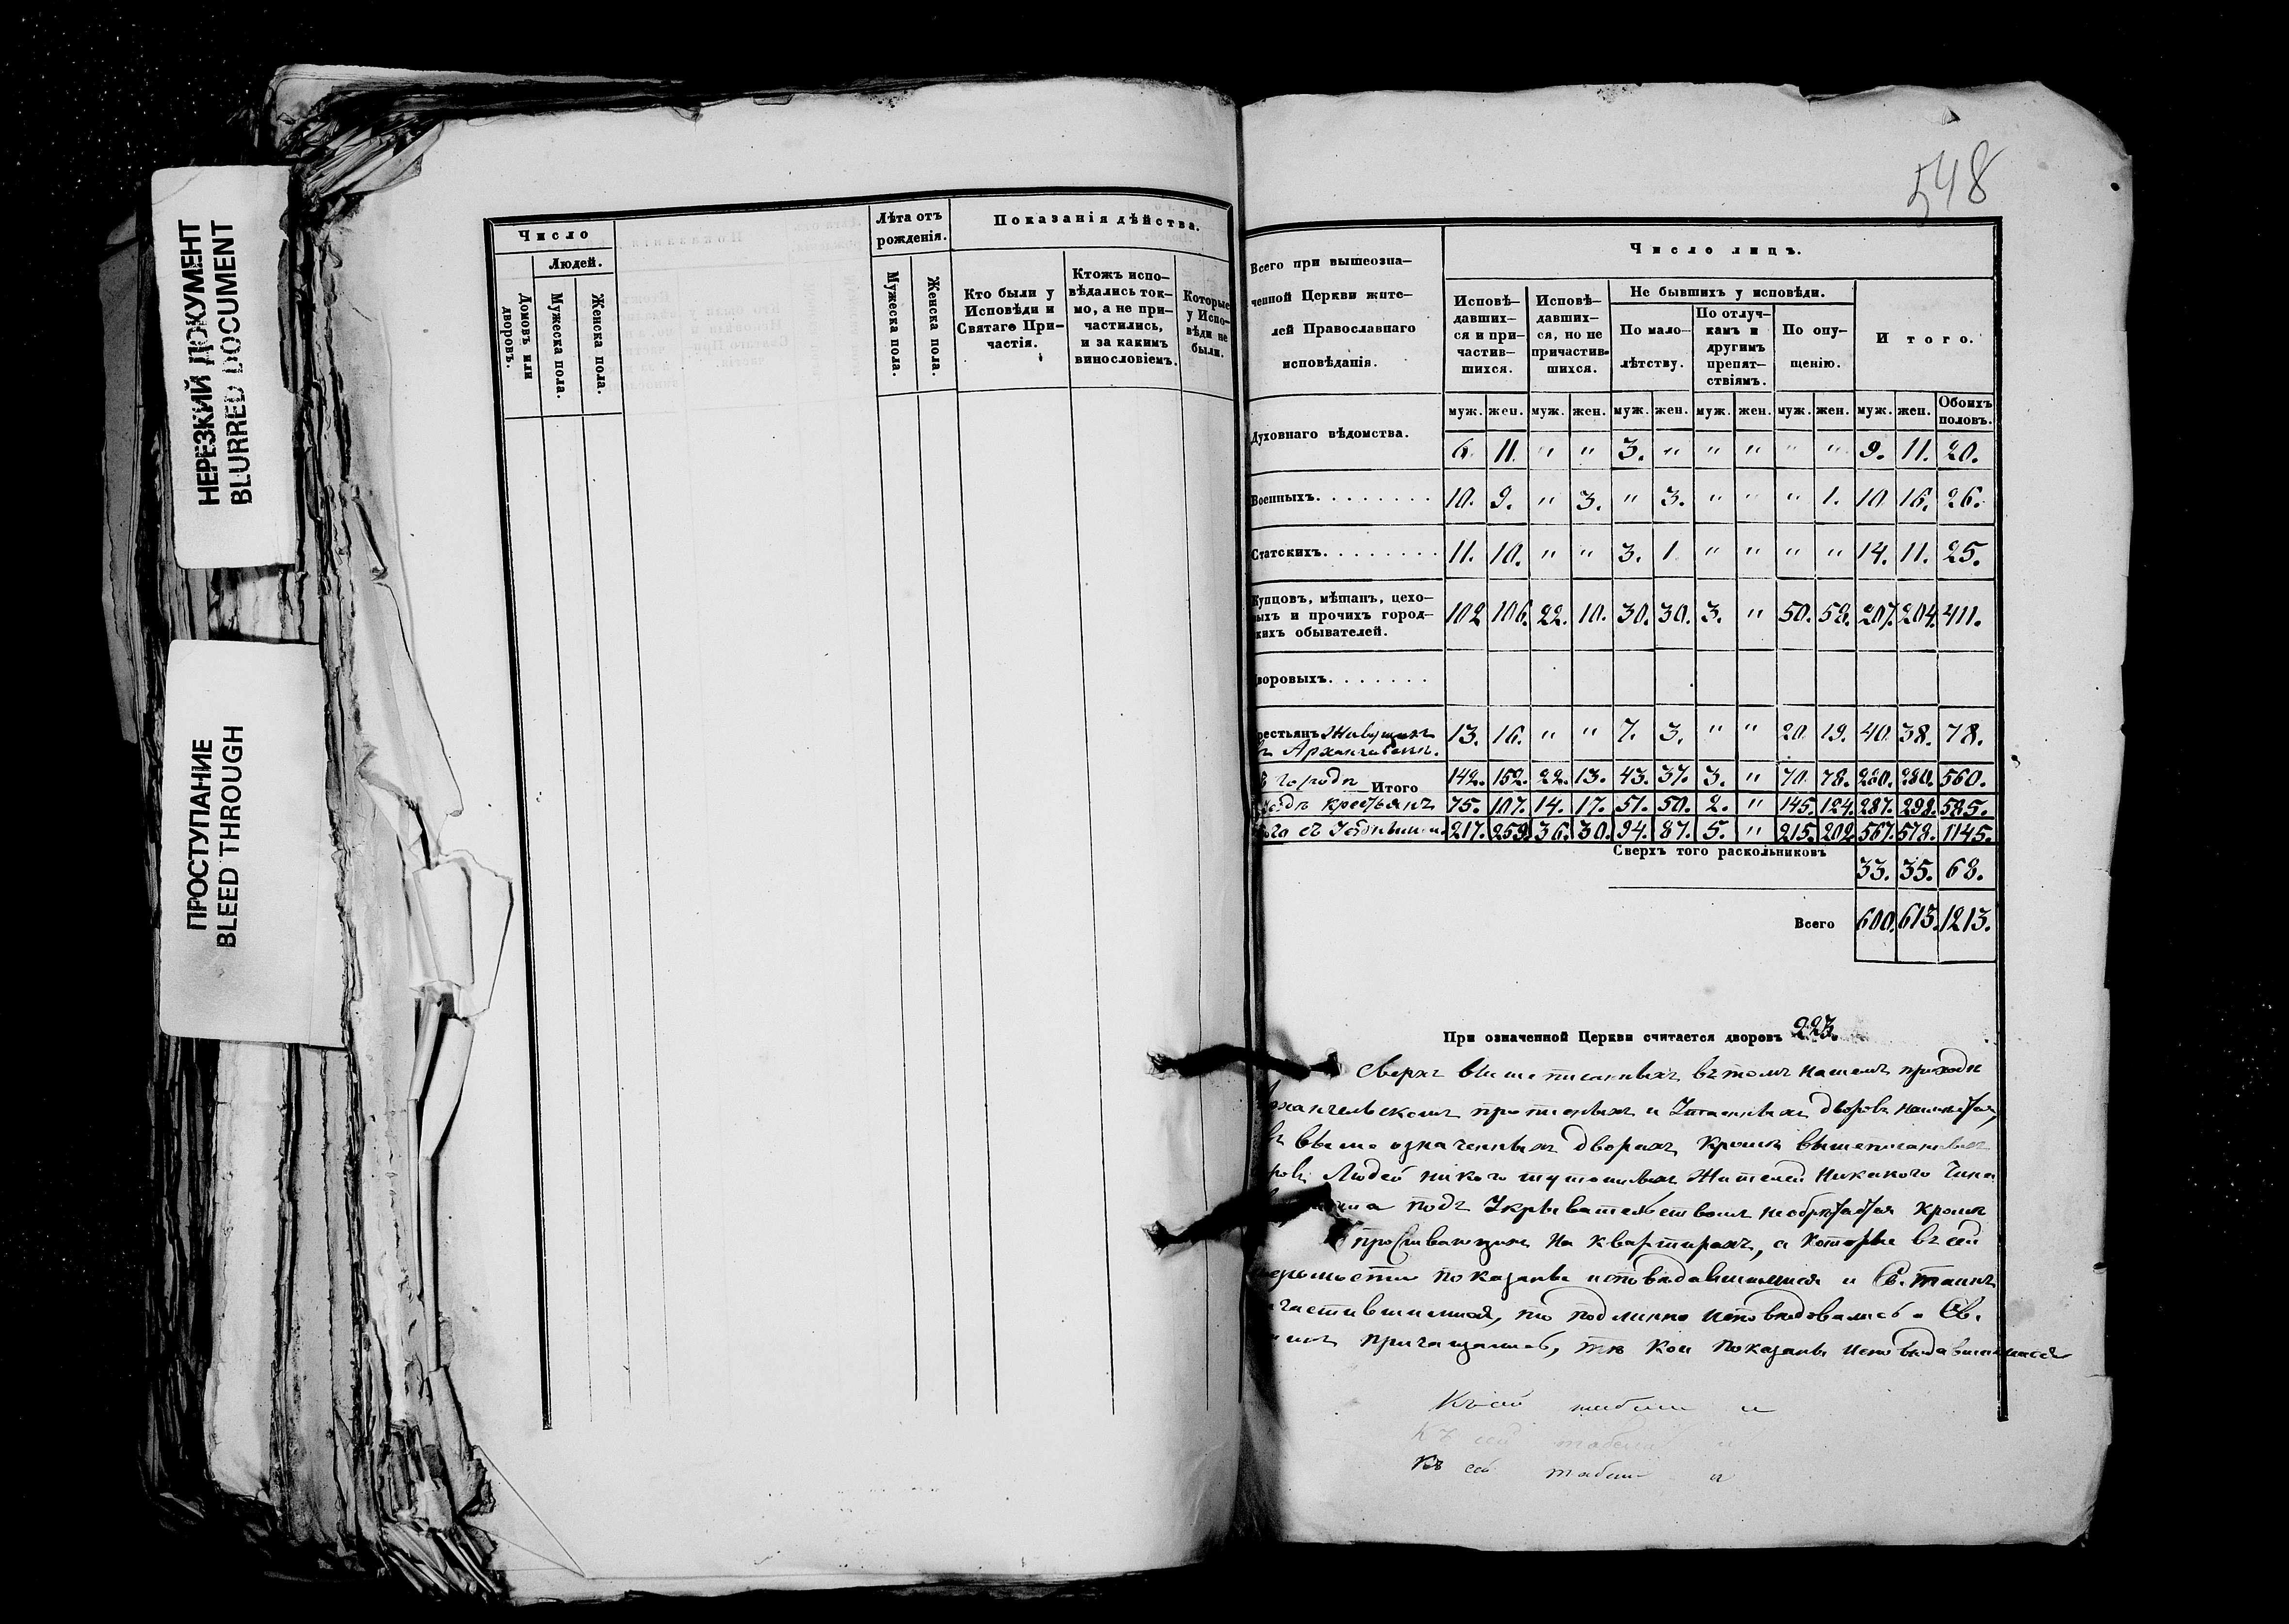 НЕРЕЗКИЙ ДОКУМЕНТ
BLURRED DOCUMENT
ПРОСТУПАНИЕ
BLEED THROUGH
Число
Людей.
Домовъ или дворовъ.
Мужеска пола.
Женска пола.
Лѣта отъ рожденія.
Мужеска пола.
Женска пола.
Показанія дѣйства.
Кто были у Исповѣди и Святаго При-
частія.
Ктожъ испо-
вѣдались ток-
мо, а не при-
частились,
и за какимъ
винословіемъ.
Которые
у Испо-
вѣди не
были.
548
Всего при вышеозна-
ченной Церкви жите-
лей Православнаго
исповѣданія.
Число лицъ.
Исповѣ-
давших-
ся и при-
частив-
шихся.
Исповѣ-
давших-
ся, но не
причастив-
шихся.
Не бывшихъ у исповѣди.
По мало-
лѣтству.
По отлуч-
камъ и
другимъ
препят-
ствіямъ.
По опу-
щенію.
Итого.
муж. жен. муж. жен. муж. жен. муж. жен. муж. жен. муж. жен. Обоихъ половъ.
Духовнаго вѣдомства. 6. 11. " " 3. " " " " " 9. 11. 20.
Военныхъ. 10. 9. " 3. " 3. " " " 1. 10 16. 26.
Статскихъ. 11. 10. " " 3. 1 " " " " 14. 11. 25.
Купцовъ, мѣщан., цехо-
выхъ и прочихъ город-
скихъ обывателей. 102 106. 22. 10. 30. 30. 3. " 50. 58. 207. 204. 411.
Дворовыхъ.
рестьянъ Живущих
въ Архангельск. 13. 16. " " 7. 3. " " 20 19. 40 38. 78.
городѣ Итого 142. 152. 22. 13. 43. 37. 3. " 70. 78. 280. 280. 560.
крестьянъ 75. 107. 14. 17. 51. 50. 2. " 145. 124. 287. 298. 585.
съ 217. 259. 36. 30. 94. 87. 5. " 215. 202. 567. 578. 1145.
Сверхъ того раскольниковъ 33. 35. 68.
Всего 600. 613. 1213.
При означенной Церкви считается дворовъ 223.
Сверхъ вышеписанныхъ въ томъ нашемъ приходѣ
прописныхъ и Утаенныхъ дворовъ
въ выше означенныхъ дворахъ кромѣ вышеписанныхъ
Людей никого тутошныхъ Жителей никакого Чина
подъ Укрывательствомъ необрѣтается кромѣ
на квартирахъ, а которые въ сей
показаны исповѣдавшимися и Св. таинъ
то подлинно исповѣдовались и Св.
причащались, тѣ кои показаны исповѣдавшимися
Къ сей табели и
Къ сей табели и
Къ сей табели и